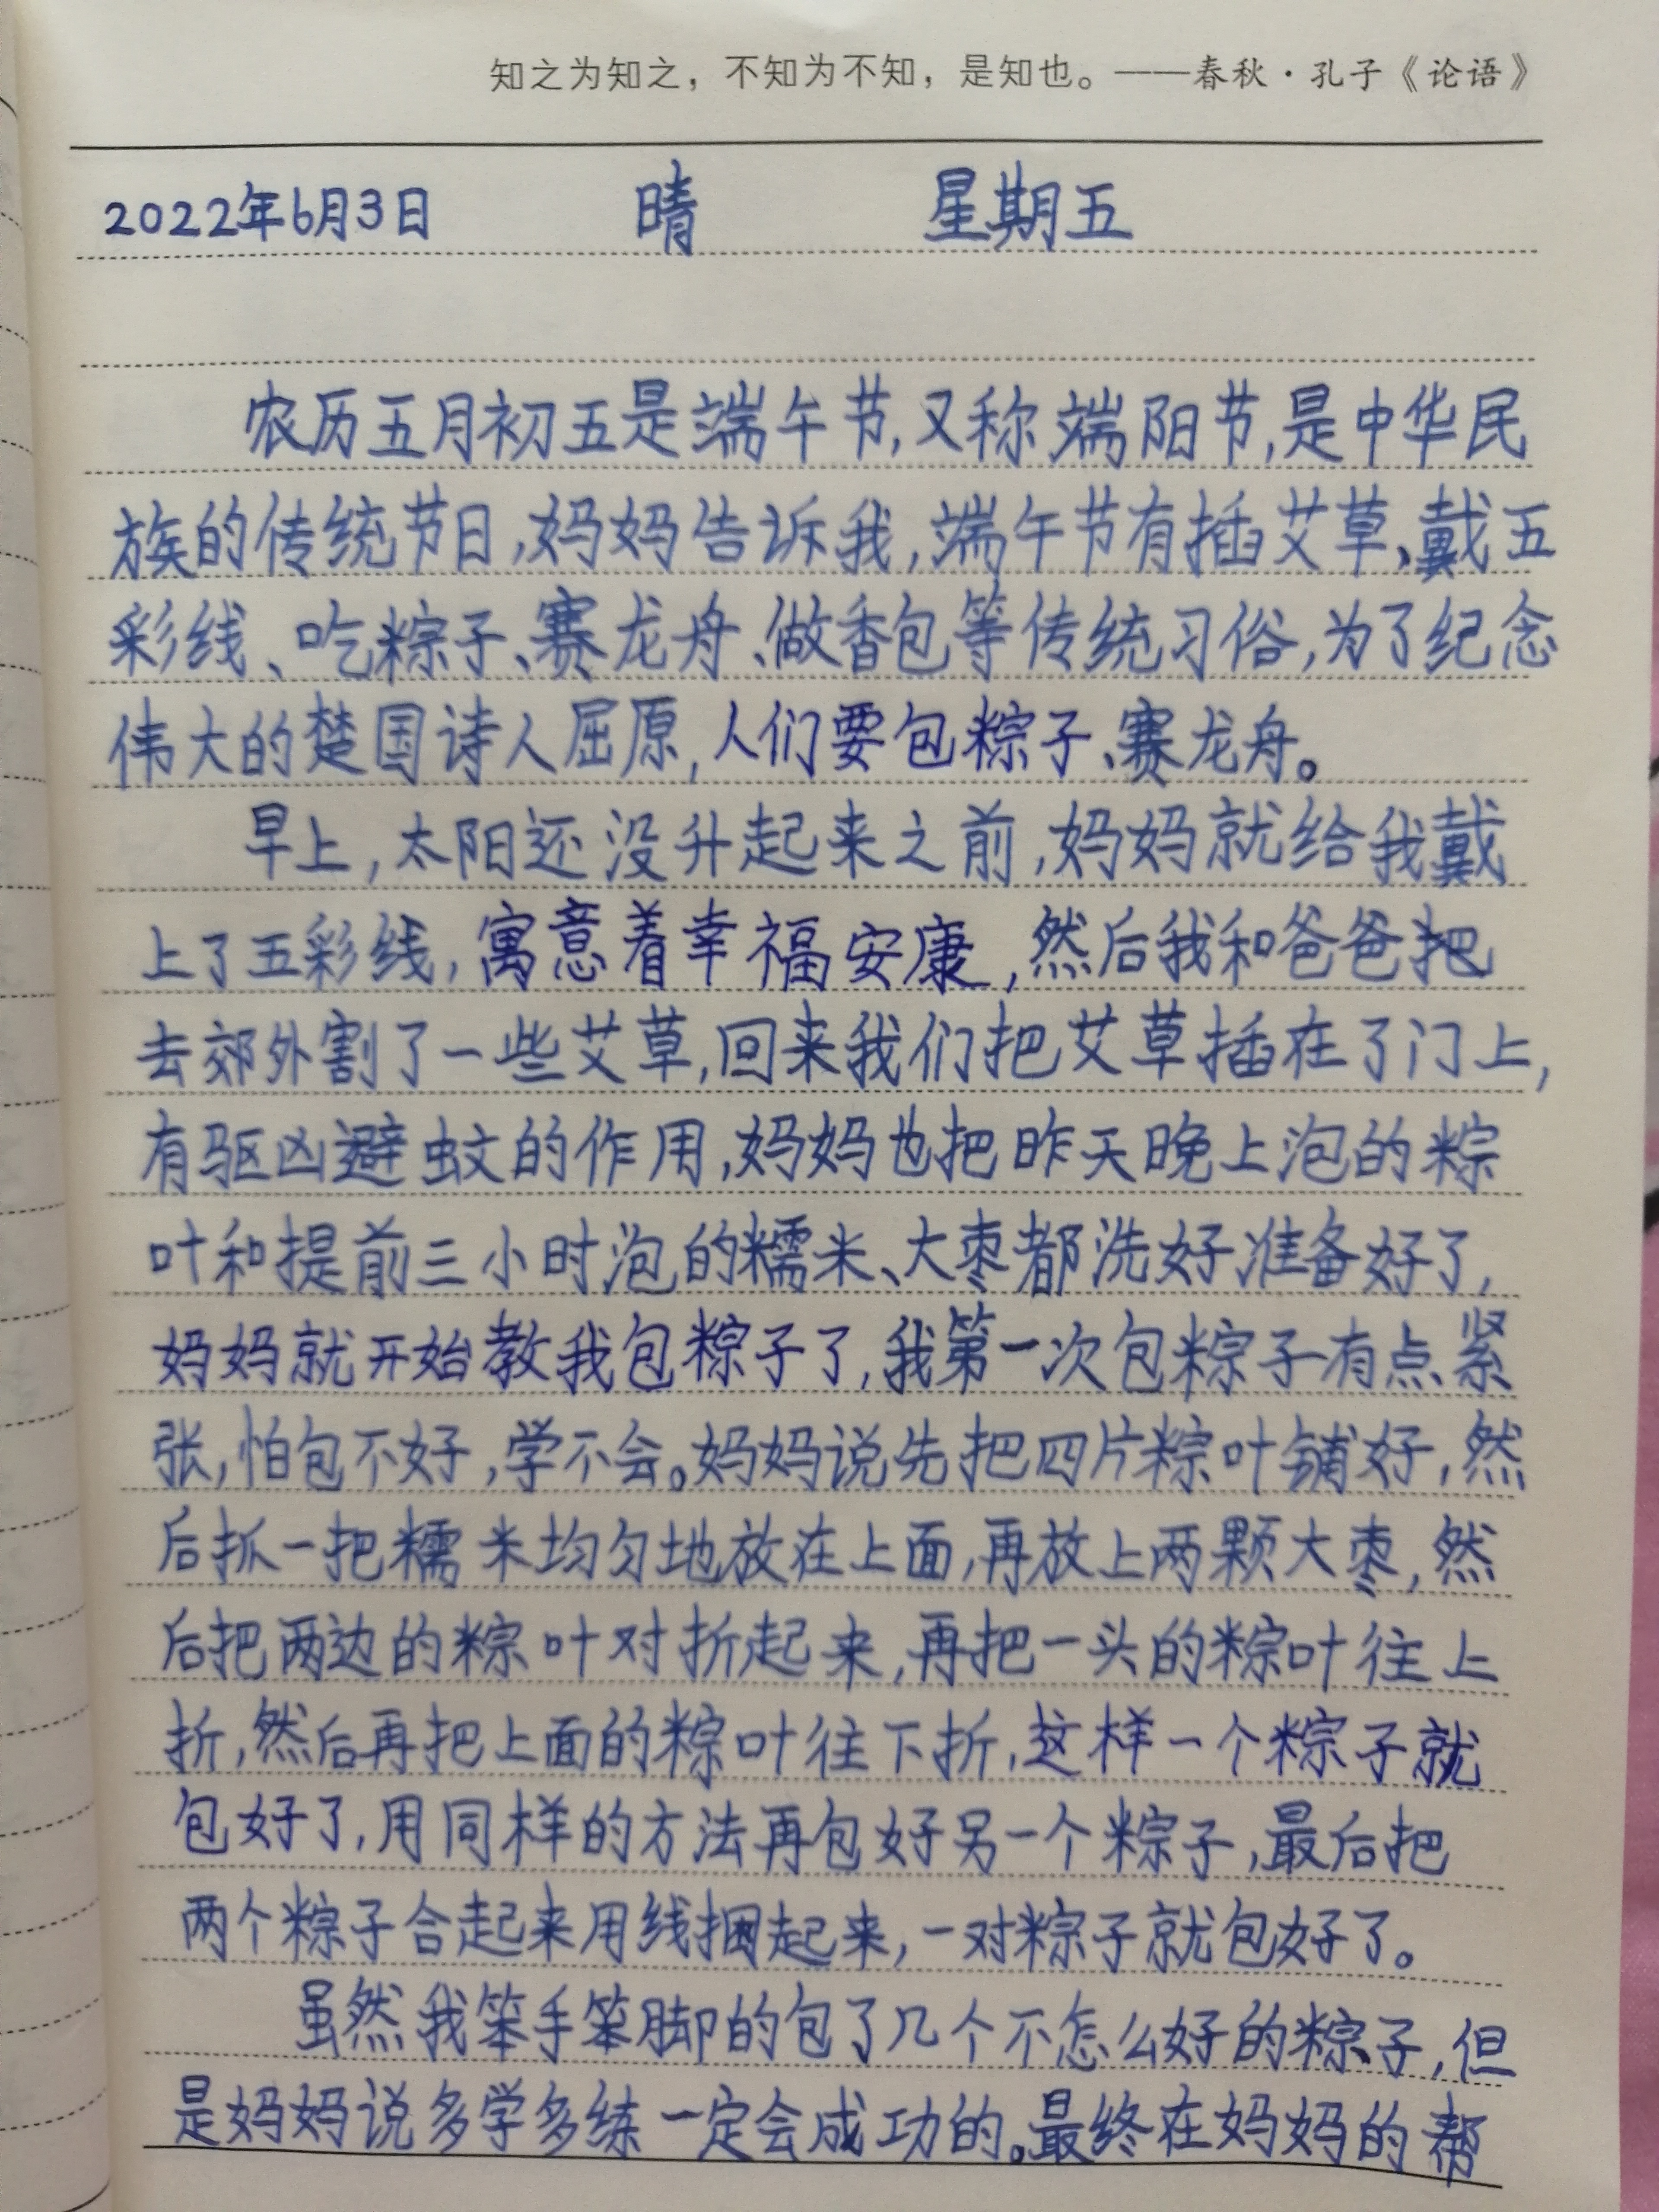 知之为知之，不知为不知，是知也。——春秋·孔子《论语》
2022年6月3日 晴 星期五
农历五月初五是端午节,又称端阳节,是中华民
族的传统节日,妈妈告诉我,端午节有插艾草、戴五
彩线、吃粽子、赛龙舟、做香包等传统习俗,为了纪念
伟大的楚国诗人屈原,人们要包粽子、赛龙舟。
早上,太阳还没升起来之前,妈妈就给我戴
上了五彩线,寓意着幸福安康,然后我和爸爸把
去郊外割了一些艾草,回来我们把艾草插在了门上,
有驱凶避蚊的作用,妈妈也把昨天晚上泡的粽
叶和提前三小时泡的糯米、大枣都洗好准备好了,
妈妈就开始教我包粽子了,我第一次包粽子有点紧
张,怕包不好,学不会。妈妈说先把四片粽叶铺好,然
后抓一把糯米均匀地放在上面,再放上两颗大枣,然
后把两边的粽叶对折起来,再把一头的粽叶往上
折,然后再把上面的粽叶往下折,这样一个粽子就
包好了,用同样的方法再包好另一个粽子,最后把
两个粽子合起来用线捆起来,一对粽子就包好了。
虽然我笨手笨脚的包了几个不怎么好的粽子,但
是妈妈说多学多练一定会成功的。最终在妈妈的帮